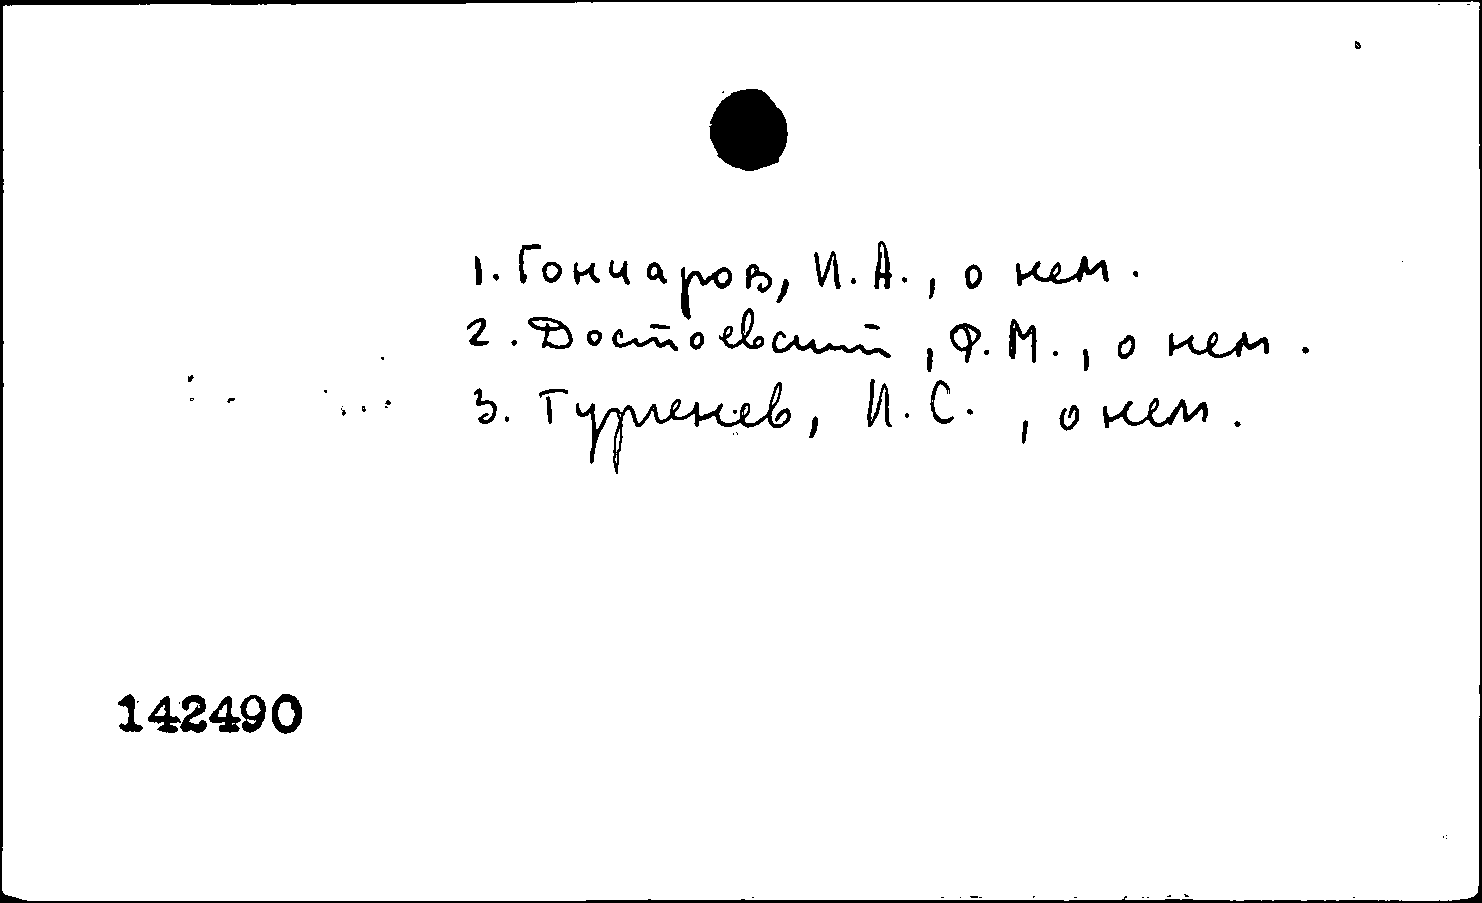 1. Гончаров, И. А., о нем.
2. Достоевский, Ф. М., о нем.
3. Тургенев, И. С., о нем.
142490